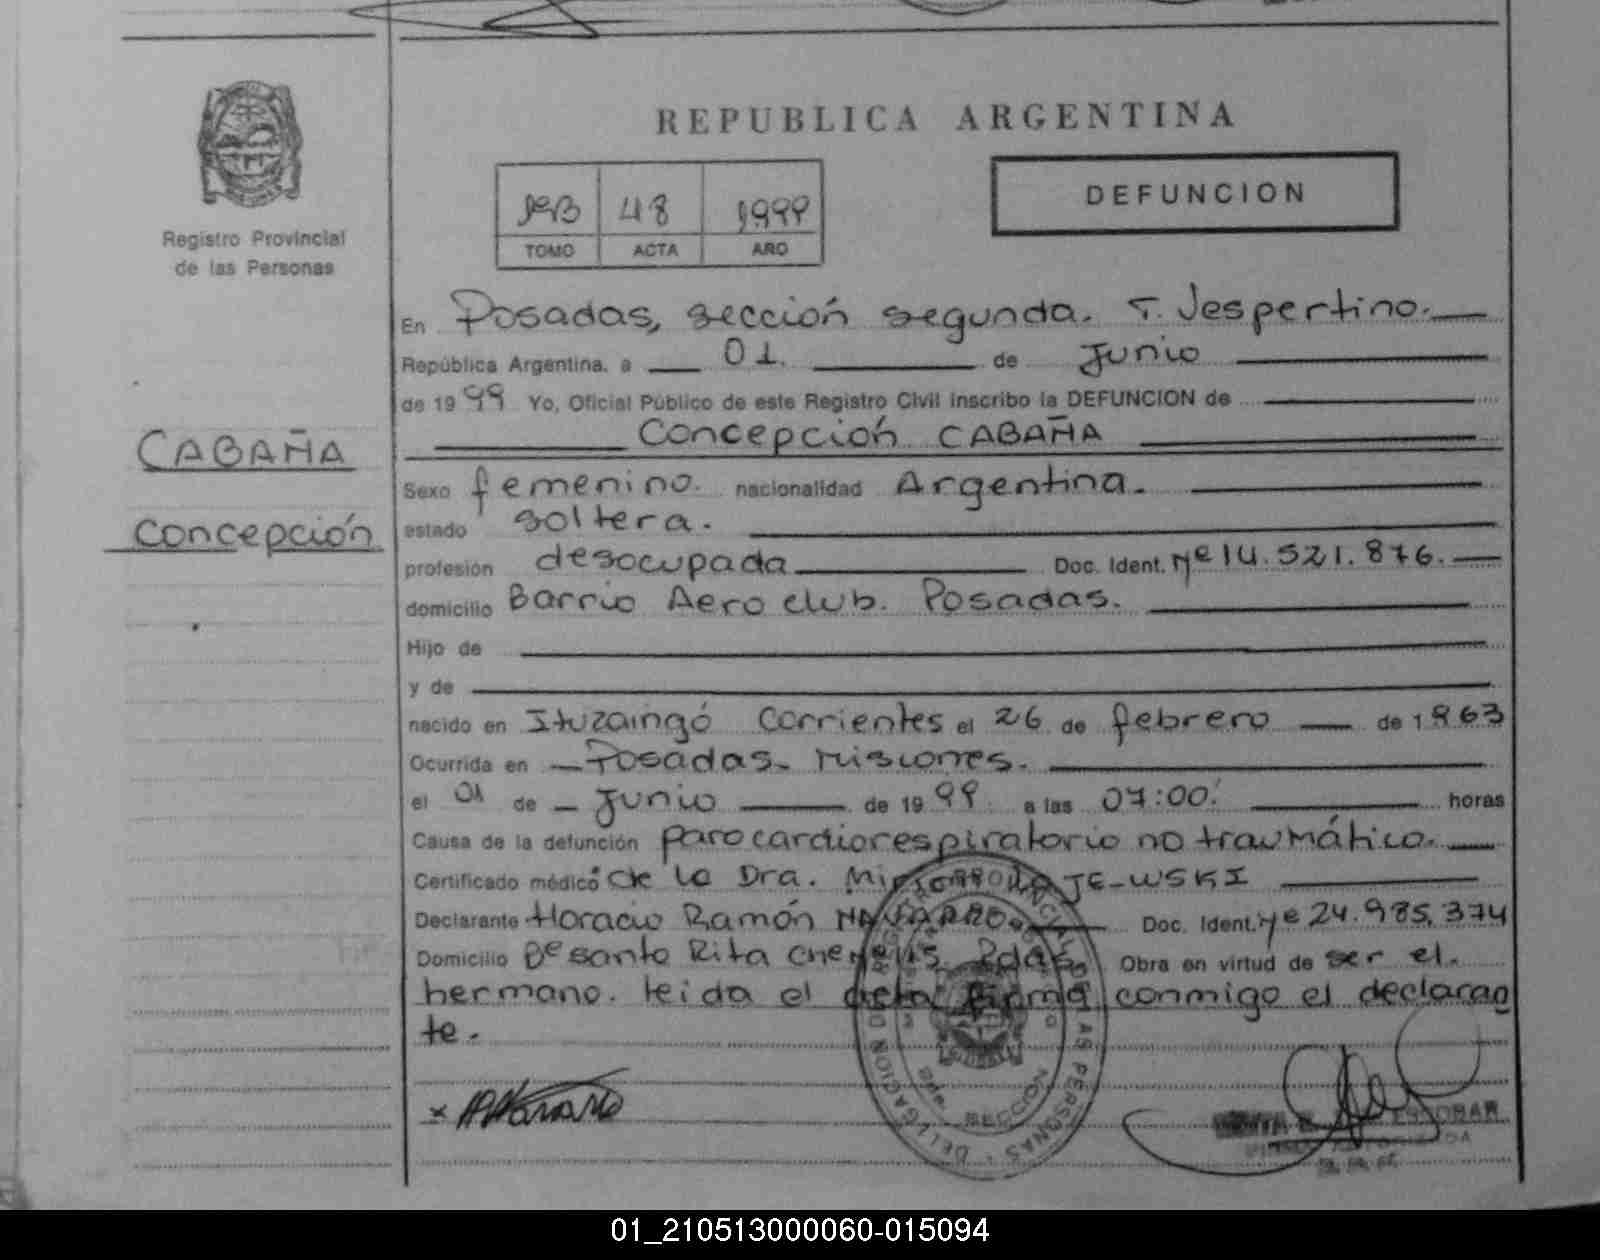 REPUBLICA ARGENTINA
48 1999
TOMO ACTA AÑO
DEFUNCION
Registro Provincial
de las Personas
CABAÑA
Concepción
En Posadas, sección segunda. T. Vespertino.
República Argentina, a 01. de Junio
de 1999 Yo, Oficial Público de este Registro Civil inscribo la DEFUNCION de
Concepción CABAÑA
Sexo femenino. nacionalidad Argentina.
estado soltera.
profesión desocupada Doc. Ident. Nº 14.521.876.
domicilio Barrio Aero club. Posadas.
Hijo de
y de
nacido en Ituzaingó Corrientes el 26 de febrero de 1963
Ocurrida en Posadas- Misiones.
el 01 de Junio de 1999. a las 07:00. horas
Causa de la defunción parocardiorespiratorio no traumático.
Certificado médico de la Dra. JE-WSKI
Declarante Horacio Ramón NAVARRO. Doc. Ident. Nº 24.985.374
Domicilio Bº santa Rita Pdas. Obra en virtud de ser el.
hermano. leida el acta firma conmigo el declaran
te.
DELEGACION DE REGISTRO PROVINCIAL DE LAS PERSONAS
2da. SECCION
ESCOBAR
01_210513000060-015094